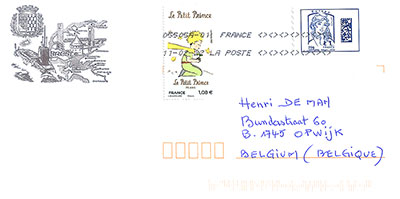 Le Petit Prince
05505A-01 FRANCE
LA POSTE
Le Petit Prince
FRANCE 1,08 €
Henri DE MAN
Bundestraat 60
B. 1745 OPWIJK
BELGIUM (BELGIQUE)